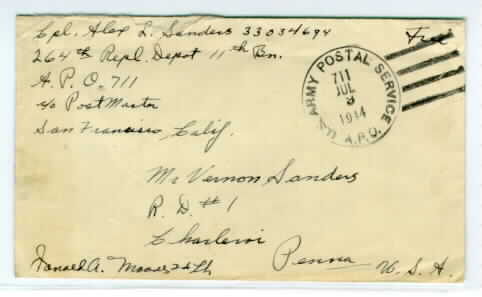 Cpl. Alex L. Sanders 33034694
Free
264th Repl. Depot 11th Bn.
A. P. O. 711
c/o Post Master
San Francisco Calif.
U.S. ARMY POSTAL SERVICE
711
JUL
9
1944
A.P.O.
Mr Vernon Sanders
R. D. #1
Charleroi
Penna
U. S. A.
A. 2d Lt